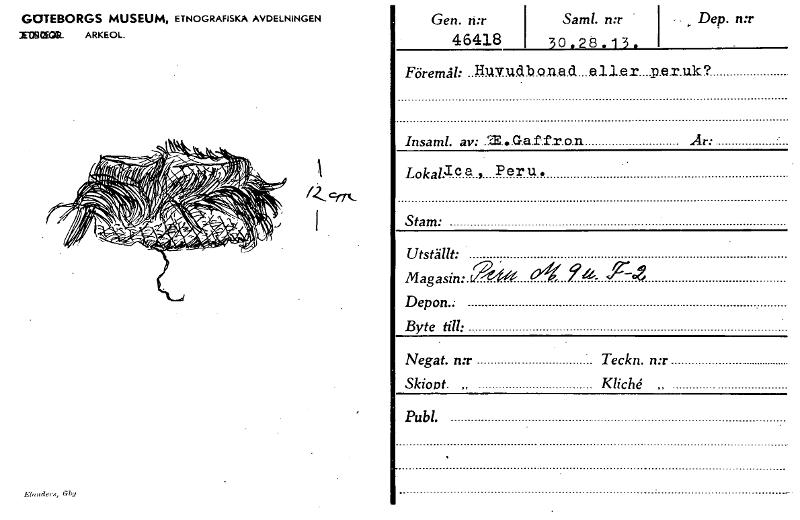 GÖTEBORGS MUSEUM, ETNOGRAFISKA AVDELNINGEN
ARKEOL.
12 cm
Elanders, Gbg
Gen. n:r Saml. n:r Dep. n:r
46418 30.28.13.
Föremål: Huvudbonad eller peruk?
Insaml. av: E.Gaffron År:
Lokal: Ica, Peru.
Stam:
Utställt:
Magasin: Peru M. 9 u. F-2
Depon.:
Byte till:
Negat. n:r Teckn. n:r
Skiopt. „ Kliché „
Publ.